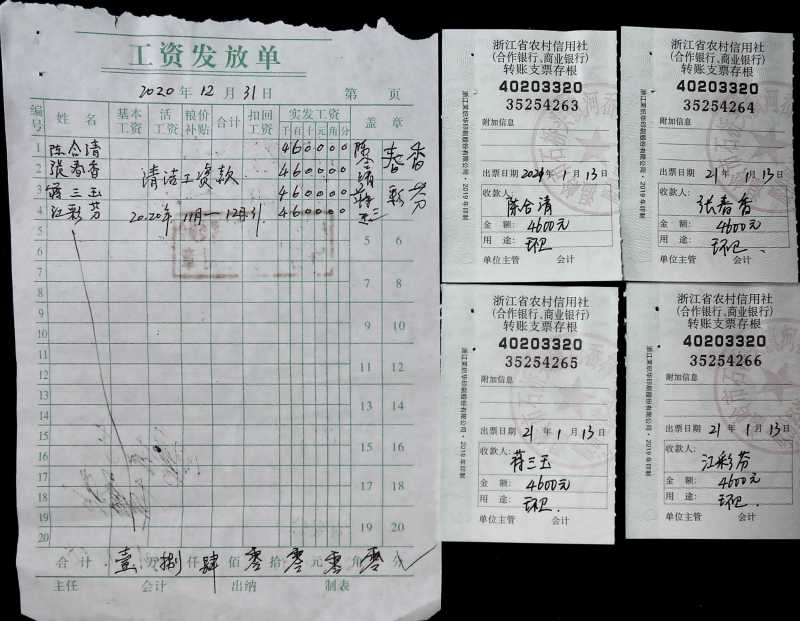 工资发放单
2020年12月31日 第 页
编号 姓名 基本工资 活工资 粮价补贴 合计 扣回工资 实发工资 盖章
千 百 十 元 角 分
1 陈合清 460000 陈合清 春香
2 张春香 清洁工资款 460000
3 蒋三玉 460000 蒋三玉 彩芬
4 江彩芬 2020年11月—12月引. 460000
5 5 6
6
7 7 8
8
9 9 10
10
11 11 12
12
13 13 14
14
15 15 16
16
17 17 18
18
19 19 20
20
合计 壹万捌仟肆佰零拾零元零角零分
主任 会计 出纳 制表
浙江省农村信用社
(合作银行、商业银行)
转账支票存根
40203320
35254263
附加信息
出票日期 2021年1月13日
收款人:
陈合清
金额: 4600元
用途: 环卫.
单位主管 会计
浙江省农村信用社
(合作银行、商业银行)
转账支票存根
40203320
35254264
附加信息
出票日期 21年1月13日
收款人:
张春香
金额: 4600元
用途: 环卫.
单位主管 会计
浙江省农村信用社
(合作银行、商业银行)
转账支票存根
40203320
35254265
附加信息
出票日期 21年1月13日
收款人:
蒋三玉
金额: 4600元
用途: 环卫.
单位主管 会计
浙江省农村信用社
(合作银行、商业银行)
转账支票存根
40203320
35254266
附加信息
出票日期 21年1月13日
收款人:
江彩芬
金额: 4600元
用途: 环卫.
单位主管 会计